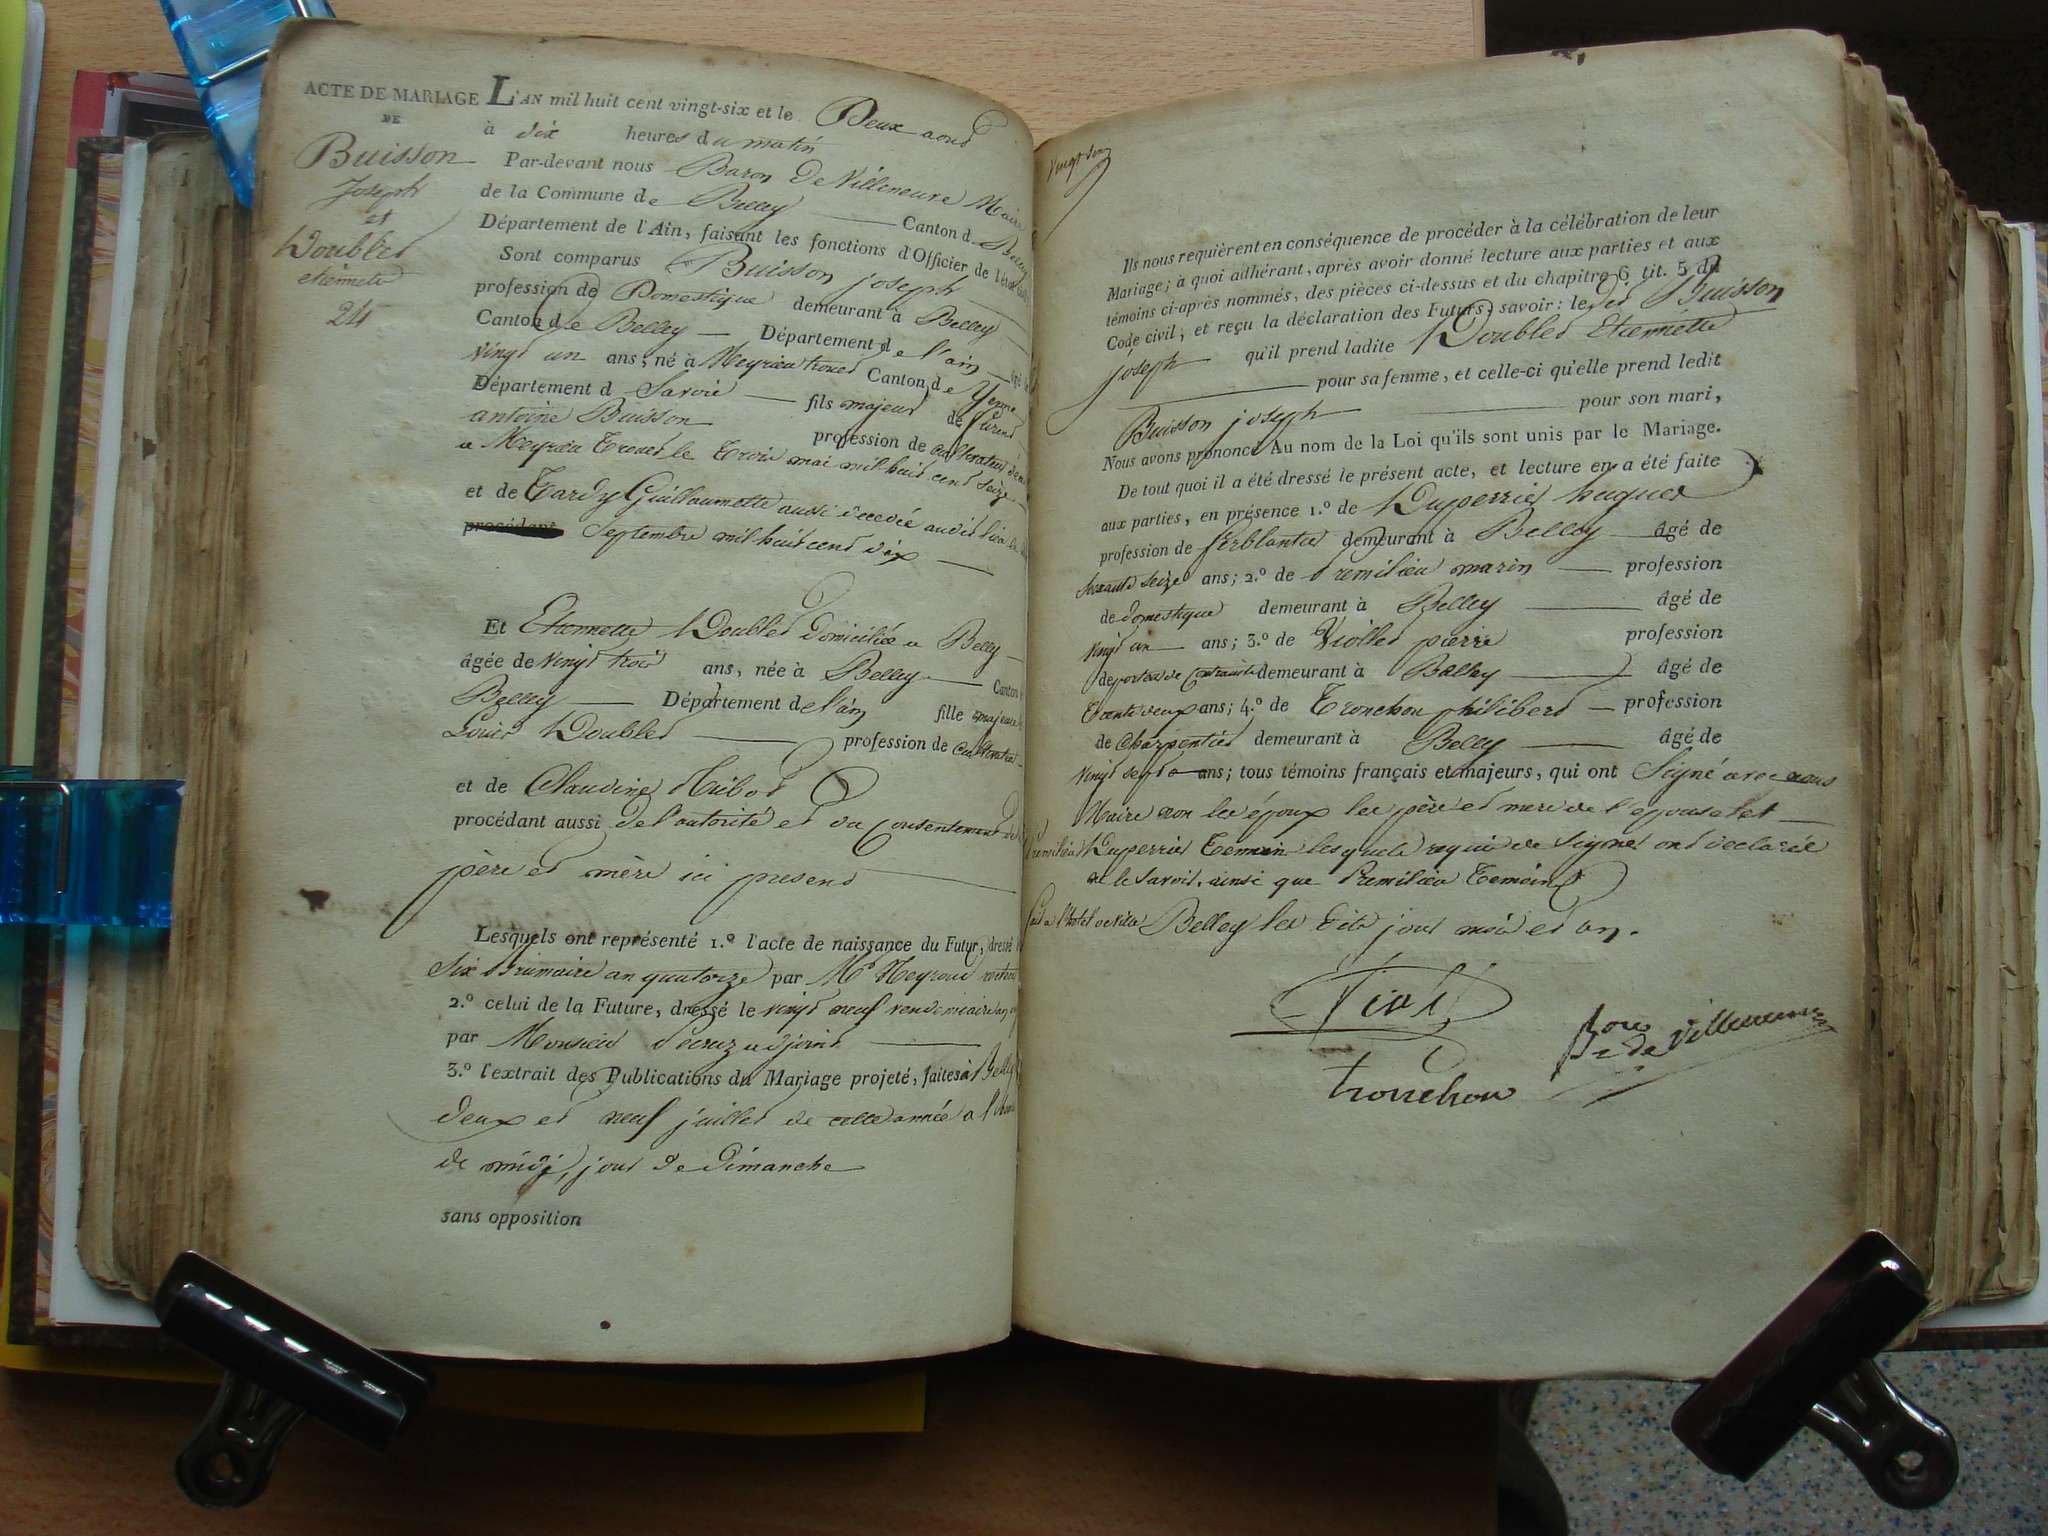 ACTE DE MARIAGE
DE
Buisson
Joseph
et
Doublet
etiennete
24
L'AN mil huit cent vingt-six et le Deux aout
à dix heures du matin
Par-devant nous Baron De Villeneuve Maire
de la Commune de Belley Canton d Belley
Département de l'Ain, faisant les fonctions d'Officier de l'état civil
Sont comparus Buisson joseph
profession de Domestique demeurant à Belley
Canton de Belley Département de l'ain âgé de
vingt un ans, né à Meyrieu trouet Canton de Yenne
Département d Savoie fils majeur de
antoine Buisson profession de cultivateur
a Meyrieu Trouet le trois mai mil huit cent seize
et de Tardy Guillaumette aussi décedée audit lieu le
procédant Septembre mil huit cent dix
Et Etiennette Doublet Domiciliée a Belley
âgée de vingt trois ans, née à Belley Canton
Belley Département de l'ain fille majeure
Louis Doublet profession de cultivateur
et de Claudine
procédant aussi de l'autorité et du consentement de
père et mère ici present
Lesquels ont représenté 1.º l'acte de naissance du Futur, dressé
Six Brumaire an quatorze par Mr
2.º celui de la Future, dressé le vingt neuf vendemiaire an
par Monsieur adjoint
3.º l'extrait des Publications du Mariage projeté, faites à Belley
deux et neuf juillet de cette année a l'heure
de midi, jour de Dimanche
sans opposition
Ils nous requièrent en conséquence de procéder à la célébration de leur
Mariage; à quoi adhérant, après avoir donné lecture aux parties et aux
témoins ci-après nommés, des pièces ci-dessus et du chapitre 6 tit. 5 du
Code civil, et reçu la déclaration des Futurs, savoir: le dit Buisson
joseph qu'il prend ladite Doublet Etiennette
pour sa femme, et celle-ci qu'elle prend ledit
Buisson joseph pour son mari,
Nous avons prononcé Au nom de la Loi qu'ils sont unis par le Mariage.
De tout quoi il a été dressé le présent acte, et lecture en a été faite
aux parties, en présence 1.º de Duperrier hugues
profession de ferblantier demeurant à Belley âgé de
soixante seize ans; 2.º de Premilieu marin profession
de domestique demeurant à Belley âgé de
vingt un ans; 3.º de Viollet pierre profession
de porteur de Contrainte demeurant à Belley âgé de
trente deux ans; 4.º de Tronchon philibert profession
de Charpentier demeurant à Belley âgé de
vingt sept ans; tous témoins français et majeurs, qui ont Signé avec nous
Maire non les époux les père et mere de l'epouse et
Duperrier Temoin lesquels requis de signer ont déclaré
ne le savoir, ainsi que Premilieu Temoin
fait a l'hotel de ville Belley les dits jour mois et an.
tronchon
Bon de Villeneuve